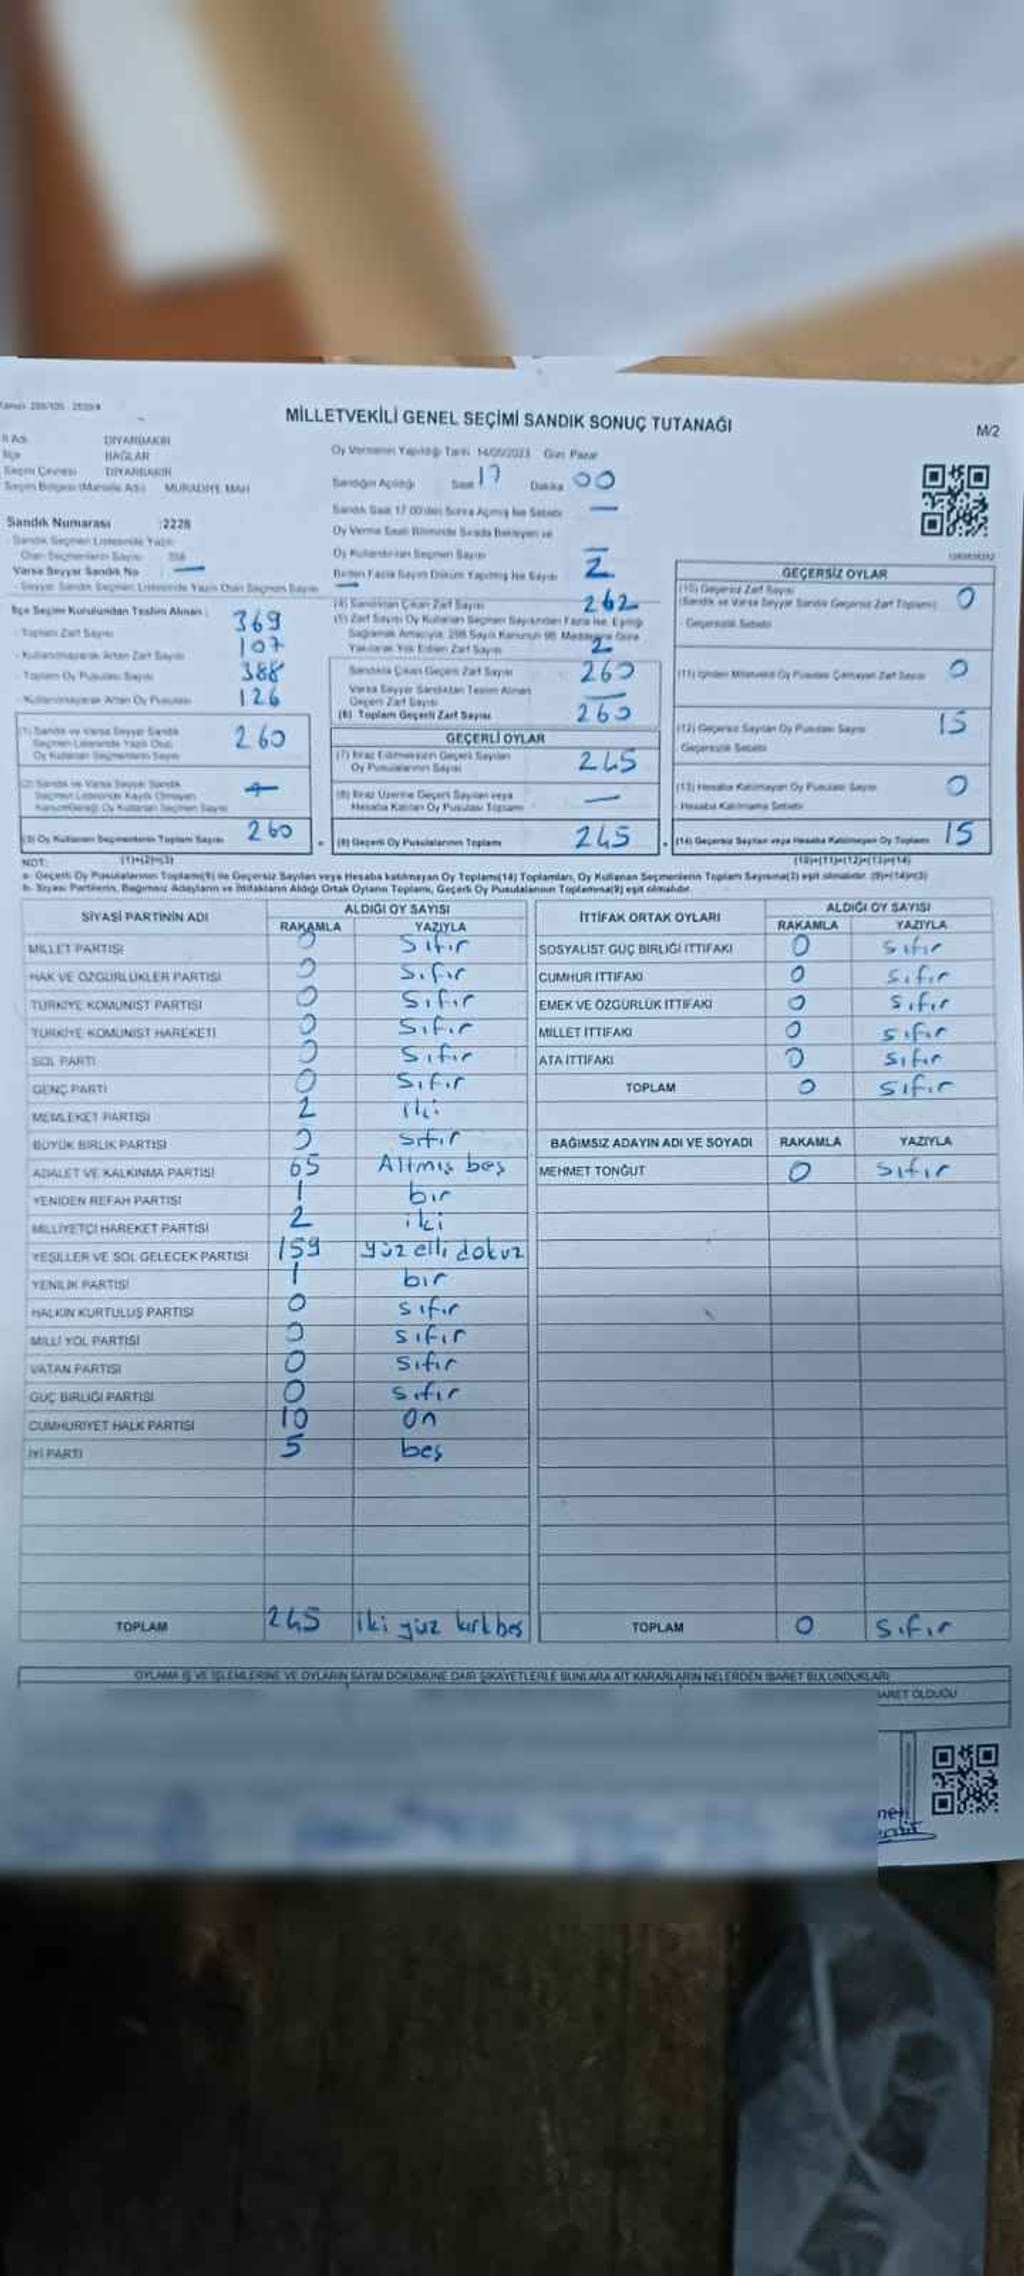 MİLLETVEKİLİ GENEL SEÇİMİ SANDIK SONUÇ TUTANAĞI
M/2
İl Adı DİYARBAKIR
İlçe BAĞLAR
Seçim Çevresi DİYARBAKIR
Seçim Bölgesi (Mahalle Adı) MURADİYE MAH
Oy Vermenin Yapıldığı Tarih 14/05/2023 Gün Pazar
Sandığın Açıldığı Saat 17 Dakika 00
Sandık Saat 17.00'den Sonra Açılmış İse Sebebi —
Oy Verme Saati Bitiminde Sırada Bekleyen ve
Oy Kullandırılan Seçmen Sayısı —
Birden Fazla Sayım Döküm Yapılmış İse Sayısı 2
Sandık Numarası :2228
Sandık Seçmen Listesinde Yazılı
Olan Seçmenlerin Sayısı
Varsa Seyyar Sandık No —
Seyyar Sandık Seçmen Listesinde Yazılı Olan Seçmen Sayısı —
İlçe Seçim Kurulundan Teslim Alınan :
- Toplam Zarf Sayısı 369
- Kullanılmayarak Artan Zarf Sayısı 107
- Toplam Oy Pusulası Sayısı 388
- Kullanılmayarak Artan Oy Pusulası 126
(1) Sandık ve Varsa Seyyar Sandık
Seçmen Listesinde Yazılı Olup
Oy Kullanan Seçmenlerin Sayısı 260
(2) Sandık ve Varsa Seyyar Sandık
Seçmen Listesinde Kayıtlı Olmayan
Kanun Gereği Oy Kullanan Seçmen Sayısı
(3) Oy Kullanan Seçmenlerin Toplam Sayısı 260
(1)+(2)=(3)
(4) Sandıktan Çıkan Zarf Sayısı 262
(5) Zarf Sayısı Oy Kullanan Seçmen Sayısından Fazla İse, Eşitliği
Sağlamak Amacıyla, 298 Sayılı Kanunun 98. Maddesine Göre
Yakılarak Yok Edilen Zarf Sayısı 2
Sandıkta Çıkan Geçerli Zarf Sayısı 260
Varsa Seyyar Sandıktan Teslim Alınan
Geçerli Zarf Sayısı —
(6) Toplam Geçerli Zarf Sayısı 260
GEÇERLİ OYLAR
(7) İtiraz Edilmeksizin Geçerli Sayılan
Oy Pusulalarının Sayısı 245
(8) İtiraz Üzerine Geçerli Sayılan veya
Hesaba Katılan Oy Pusulası Toplamı —
(9) Geçerli Oy Pusulalarının Toplamı 245
GEÇERSİZ OYLAR
(10) Geçersiz Zarf Sayısı
(Sandık ve Varsa Seyyar Sandık Geçersiz Zarf Toplamı) 0
Geçersizlik Sebebi
(11) İçinden Milletvekili Oy Pusulası Çıkmayan Zarf Sayısı 0
(12) Geçersiz Sayılan Oy Pusulası Sayısı 15
Geçersizlik Sebebi
(13) Hesaba Katılmayan Oy Pusulası Sayısı 0
Hesaba Katılmama Sebebi
(14) Geçersiz Sayılan veya Hesaba Katılmayan Oy Toplamı 15
(10)+(11)+(12)+(13)=(14)
NOT:
a- Geçerli Oy Pusulalarının Toplamı(9) ile Geçersiz Sayılan veya Hesaba katılmayan Oy Toplamı(14) Toplamları, Oy Kullanan Seçmenlerin Toplam Sayısına(3) eşit olmalıdır. (9)+(14)=(3)
b- Siyasi Partilerin, Bağımsız Adayların ve İttifakların Aldığı Ortak Oyların Toplamı, Geçerli Oy Pusulalarının Toplamına(9) eşit olmalıdır.
SİYASİ PARTİNİN ADI ALDIĞI OY SAYISI
RAKAMLA YAZIYLA
MİLLET PARTİSİ 0 Sıfır
HAK VE ÖZGÜRLÜKLER PARTİSİ 0 Sıfır
TÜRKİYE KOMÜNİST PARTİSİ 0 Sıfır
TÜRKİYE KOMÜNİST HAREKETİ 0 Sıfır
SOL PARTİ 0 Sıfır
GENÇ PARTİ 0 Sıfır
MEMLEKET PARTİSİ 2 iki
BÜYÜK BİRLİK PARTİSİ 0 sıfır
ADALET VE KALKINMA PARTİSİ 65 Altmış beş
YENİDEN REFAH PARTİSİ 1 bir
MİLLİYETÇİ HAREKET PARTİSİ 2 iki
YEŞİLLER VE SOL GELECEK PARTİSİ 159 yüz elli dokuz
YENİLİK PARTİSİ 1 bir
HALKIN KURTULUŞ PARTİSİ 0 sıfır
MİLLİ YOL PARTİSİ 0 sıfır
VATAN PARTİSİ 0 sıfır
GÜÇ BİRLİĞİ PARTİSİ 0 sıfır
CUMHURİYET HALK PARTİSİ 10 on
İYİ PARTİ 5 beş
TOPLAM 245 iki yüz kırk beş
İTTİFAK ORTAK OYLARI ALDIĞI OY SAYISI
RAKAMLA YAZIYLA
SOSYALİST GÜÇ BİRLİĞİ İTTİFAKI 0 sıfır
CUMHUR İTTİFAKI 0 sıfır
EMEK VE ÖZGÜRLÜK İTTİFAKI 0 sıfır
MİLLET İTTİFAKI 0 sıfır
ATA İTTİFAKI 0 sıfır
TOPLAM 0 sıfır
BAĞIMSIZ ADAYIN ADI VE SOYADI RAKAMLA YAZIYLA
MEHMET TONĞUT 0 sıfır
TOPLAM 0 sıfır
OYLAMA İŞ VE İŞLEMLERİNE VE OYLARIN SAYIM DÖKÜMÜNE DAİR ŞİKAYETLERLE BUNLARA AİT KARARLARIN NELERDEN İBARET BULUNDUKLARI
OLDUĞU